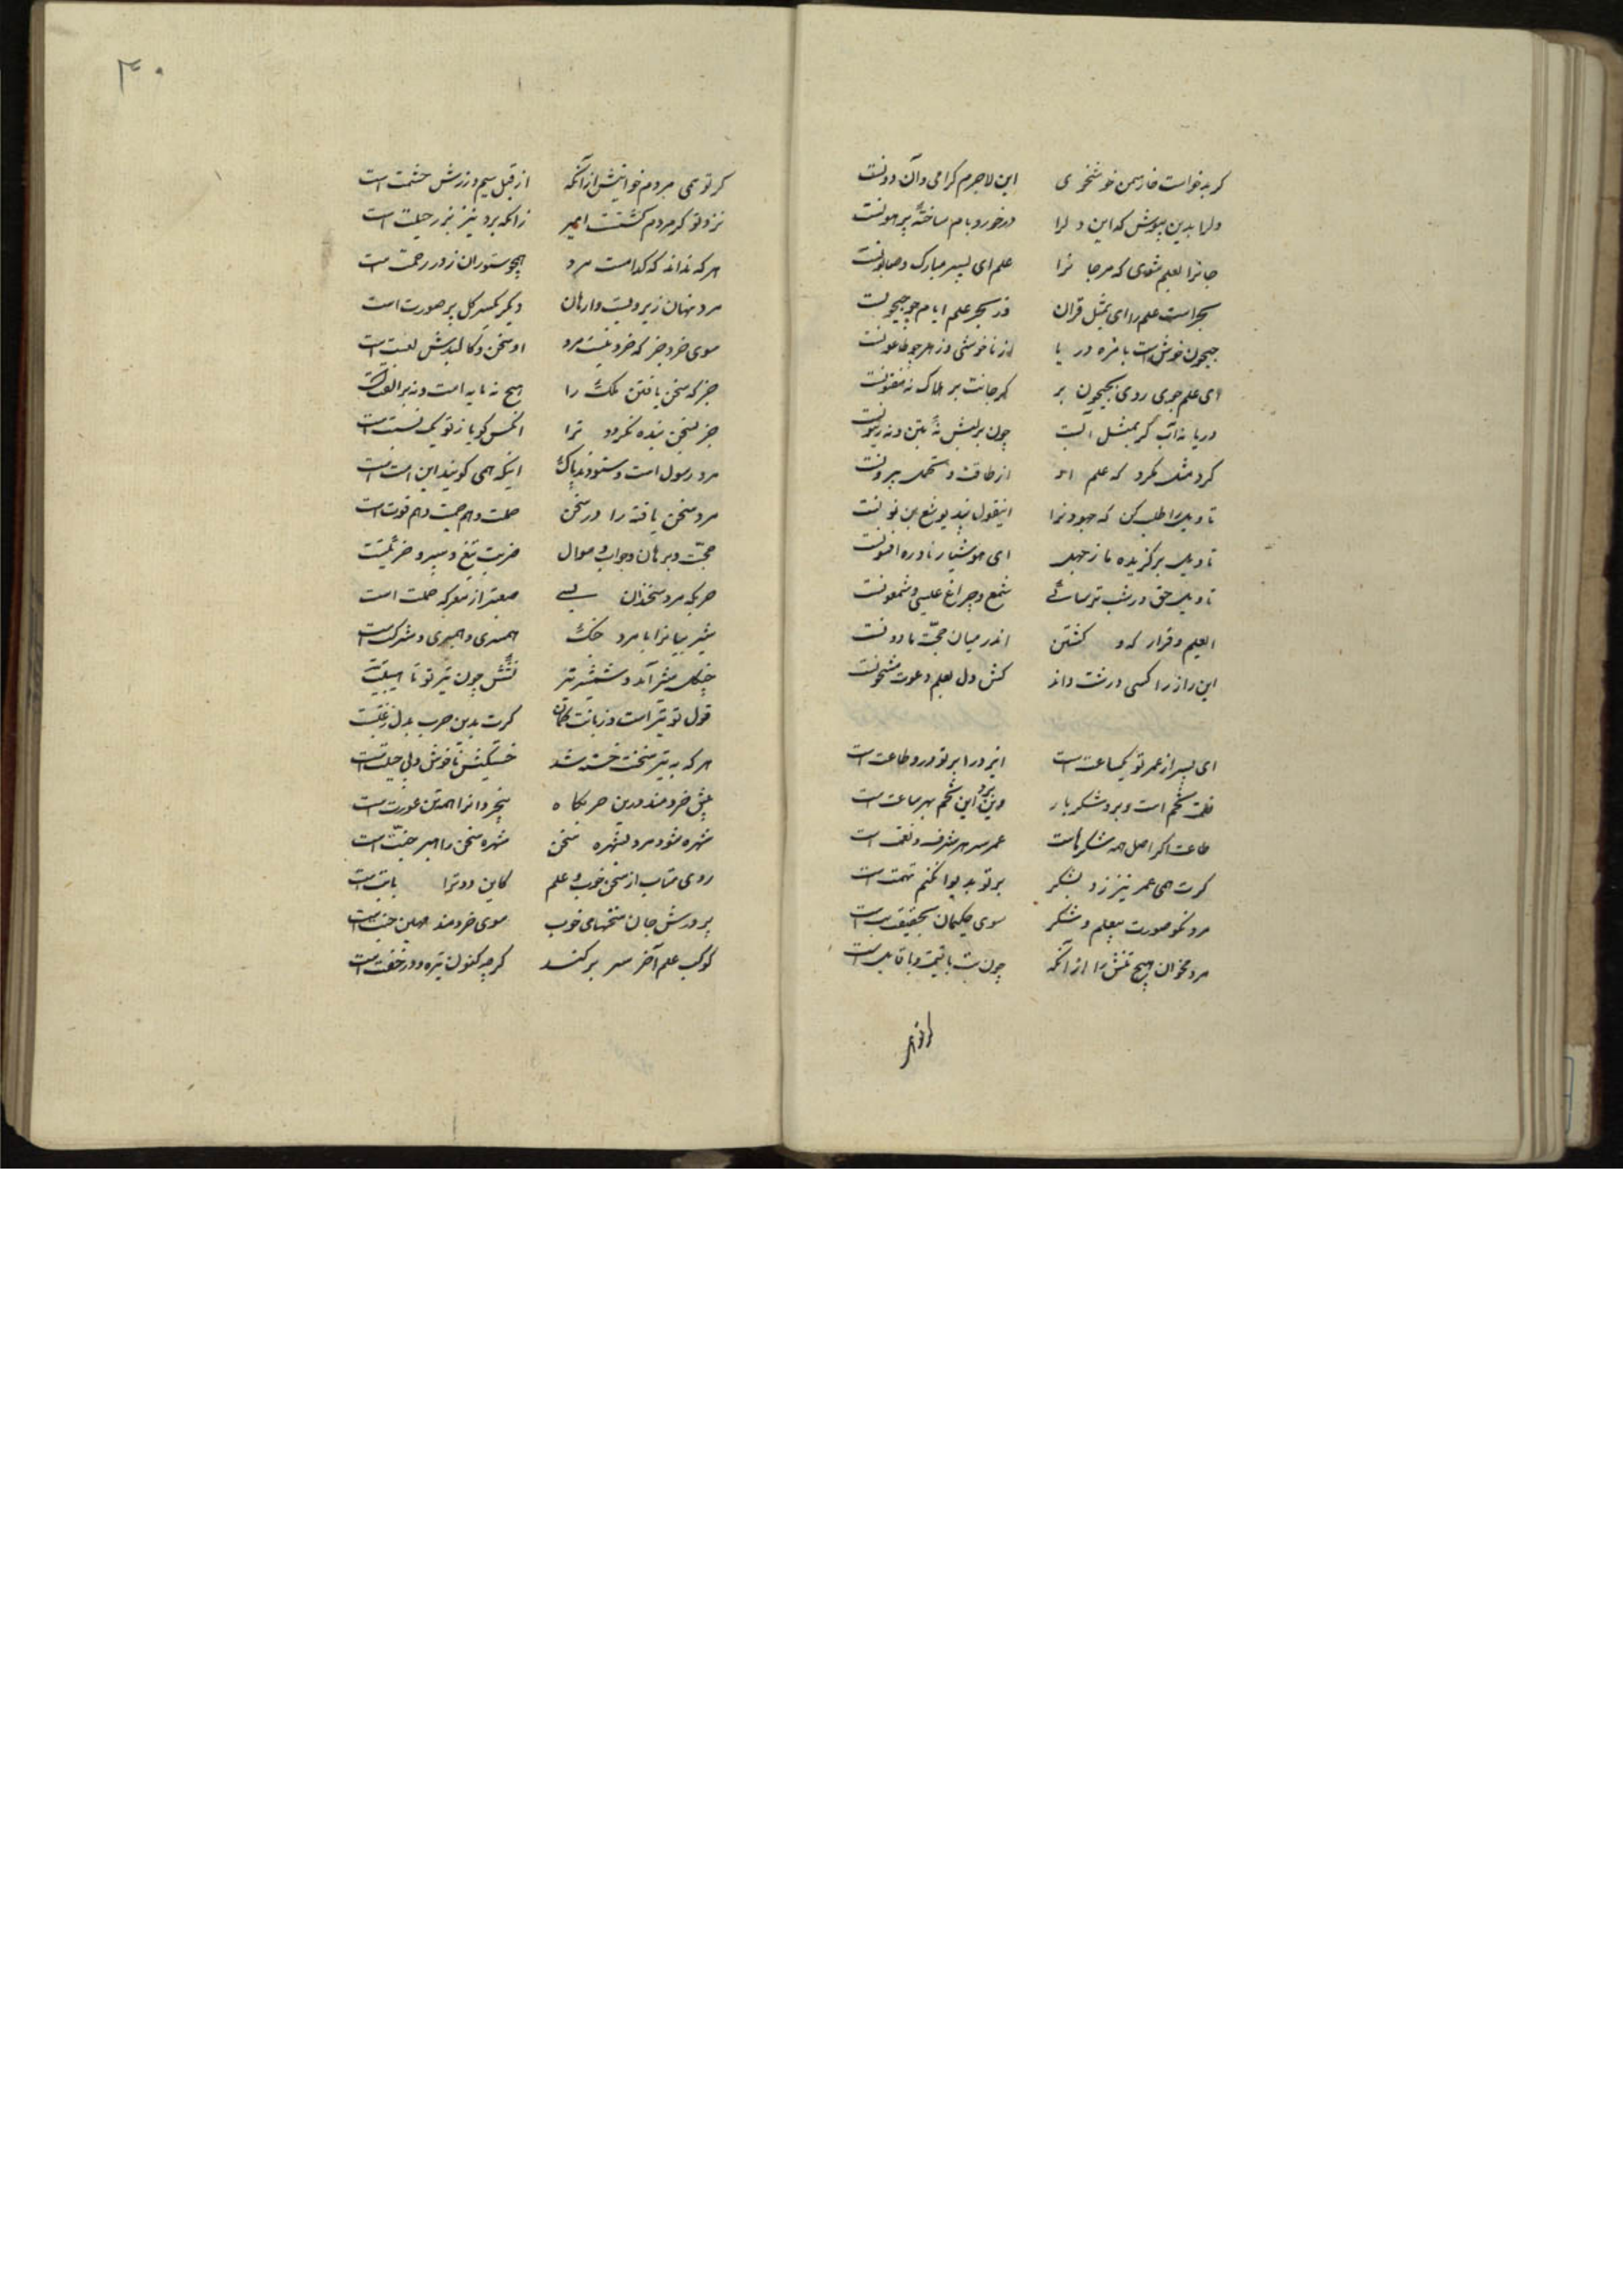 گر بدخواست خار سمن خوشخوی این لاجرم گرامی و آن دونست
و لرا بدین بپوش که این و لرا درخورد بام ساخته پرهونست
جانرا بعلم شوی که مرجا نرا علم ای پسر مبارک و صابونست
بحر است علم را ای بمثل قران در بحر علم ایام چو جیحونست
جیحون خوش است بامزه و دریا از ناخوشی و زهر چو طاعونست
ای علم جوی روی بجیحون بر گر جانت بر هلاک نه مفتونست
دریا نه آب گر بمثل است چون بر لبش نه تین و نه زیتونست
گرد مثل مگرد که علم او از طاقت و تحمل بیرونست
تاویل را طلب کن که جهودانرا این قول پند یوشع بن نونست
تاویل بر گزیده مار جهل ای هوشیار نادره افسونست
تاویل حق در شب ترسائی شمع و چراغ عیسی و شمعونست
العلم و قرار که و کشتن اندر میان حجت مادونست
این راز را کسی درست داند کش دل بعلم دعوت مشحونست
ای پسر از عمر تو یکساعت است ایزد را بر تو در و طاعت است
نعمت تخم است و برو شکر بار وین برو این تخم بهر ساعت است
طاعت اگر اصل همه شکرهاست عمر سر هر شرف و نعمت است
گرت همی عمر نیرزد بشکر بر تو بدیوانگیم تهمت است
مرد نکو صورت بیعلم و شکر سوی حکیمان بحقیقت بت است
مرد مخوان هیچ تنش را از آنکه چون بت با قیمت و با قامت است
گر تو همی مردم خوانیش از آنکه از قبل سیم و زرش حشمت است
نزد تو گر مردم گشتست ایمیر زانکه برد نیز بزر حیلت است
هر که نداند که کدامست مرد همچو ستوران ز در رحمت است
مرد نهان زیر دلست و زبان دیگر یکسر گل پر صورت است
سوی خرد جز که خرد نیست مرد او سخن و کالبدش لعبت است
جز که سخن یافتن ملک را هیچ نه مایه است و نه بر الفت است
جز بسخن بنده نگردد ترا آنکس کو با ز تو یک نسبت است
مرد رسول است و ستودند پاک اینکه همی گویند این امت است
مرد سخن یافته را در سخن حملت و هم حمیت و هم قوت است
حجت و برهان و جواب و سوال ضربت تیغ و سپر و ضربتست
حربگه مرد سخندان بسی صعبتر از معرکه حملت است
شیر بیابانرا با مرد جنگ همسری و همبری و شرکت است
چنگل شیر آمد و شمشیر تیز نشنش چون تیر تو تا هیبت است
قول تو تیر است و زبانت کمان گرت بدین حرب بدل رغبتست
هر که به تیر سخنت خسته شد خستگیش ناخوش و بی حیلتست
پیش خردمند درین حربگاه بیخردانرا همه تن عورت است
شهره شود مرد بشهره سخن شهره سخن را هبر جنتست
روی متاب از سخن خوب و علم کاین دو ترا بابت است
پرورش جان سخنهای خوب سوی خردمند مهین حسبتست
کوکب علم آخر سر بر کند گرچه کنون تیره و در خفتست
گر تو
۳۰